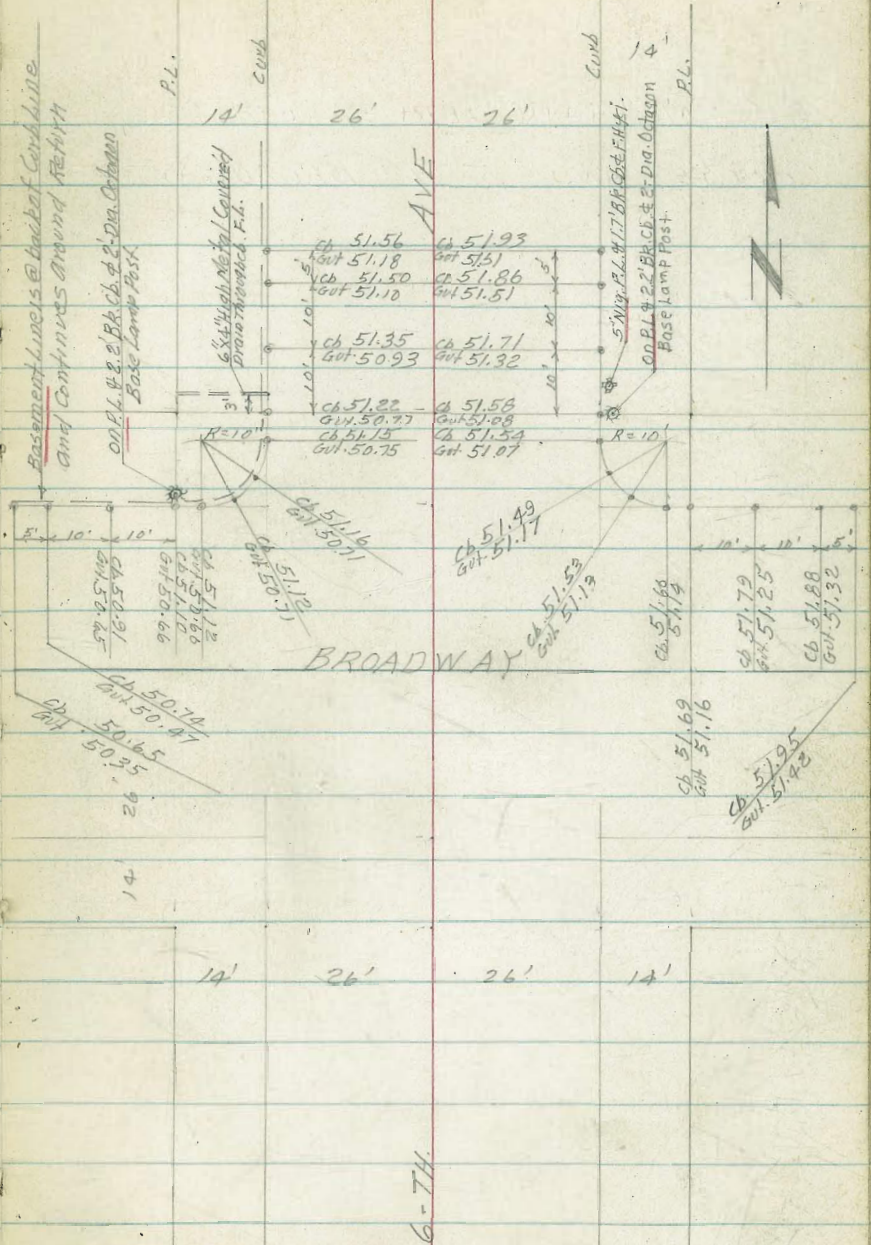 Basement Line is @ back of Curb Line
and Continues Around Return
on P.L. & 2.2' Bk. Cb. & 2'-Dia. Octagon
Base Lamp Post
P.L.
14'
Curb
26'
26'
Curb
14'
P.L.
6"x4" High Metal Covered
Drain Through cb. F.L.
AVE
5' N'ly. P.L. & 1.7' Bk. Cb. & F.Hyd.
on P.L. & 2.2' Bk. Cb. & 2'-Dia. Octagon
Base Lamp Post
Cb 51.56
Gut 51.18
Cb 51.93
Gut 51.51
5'
5'
Cb 51.50
Gut 51.10
Cb 51.86
Gut 51.51
10'
10'
Cb 51.35
Gut 50.93
Cb 51.71
Gut 51.32
10'
10'
3'
Cb 51.22
Gut 50.77
Cb 51.58
Gut 51.08
R=10'
Cb 51.15
Gut 50.75
Cb 51.54
Gut 51.07
R=10'
5'
10'
10'
Cb 51.16
Gut 50.71
Cb 51.12
Gut 50.71
Cb 51.49
Gut 51.17
Cb 51.53
Gut 51.13
10'
10'
5'
Cb 50.91
Gut 50.65
Cb 51.10
Gut 50.66
Cb 51.12
Gut 50.66
Cb 51.68
51.14
Cb 51.79
Gut 51.25
Cb 51.88
Gut 51.32
BROADWAY
Cb 50.74
Gut 50.47
Cb 50.65
Gut 50.35
Cb 51.69
Gut 51.16
Cb 51.95
Gut 51.42
26'
14'
14'
26'
26'
14'
6-TH.